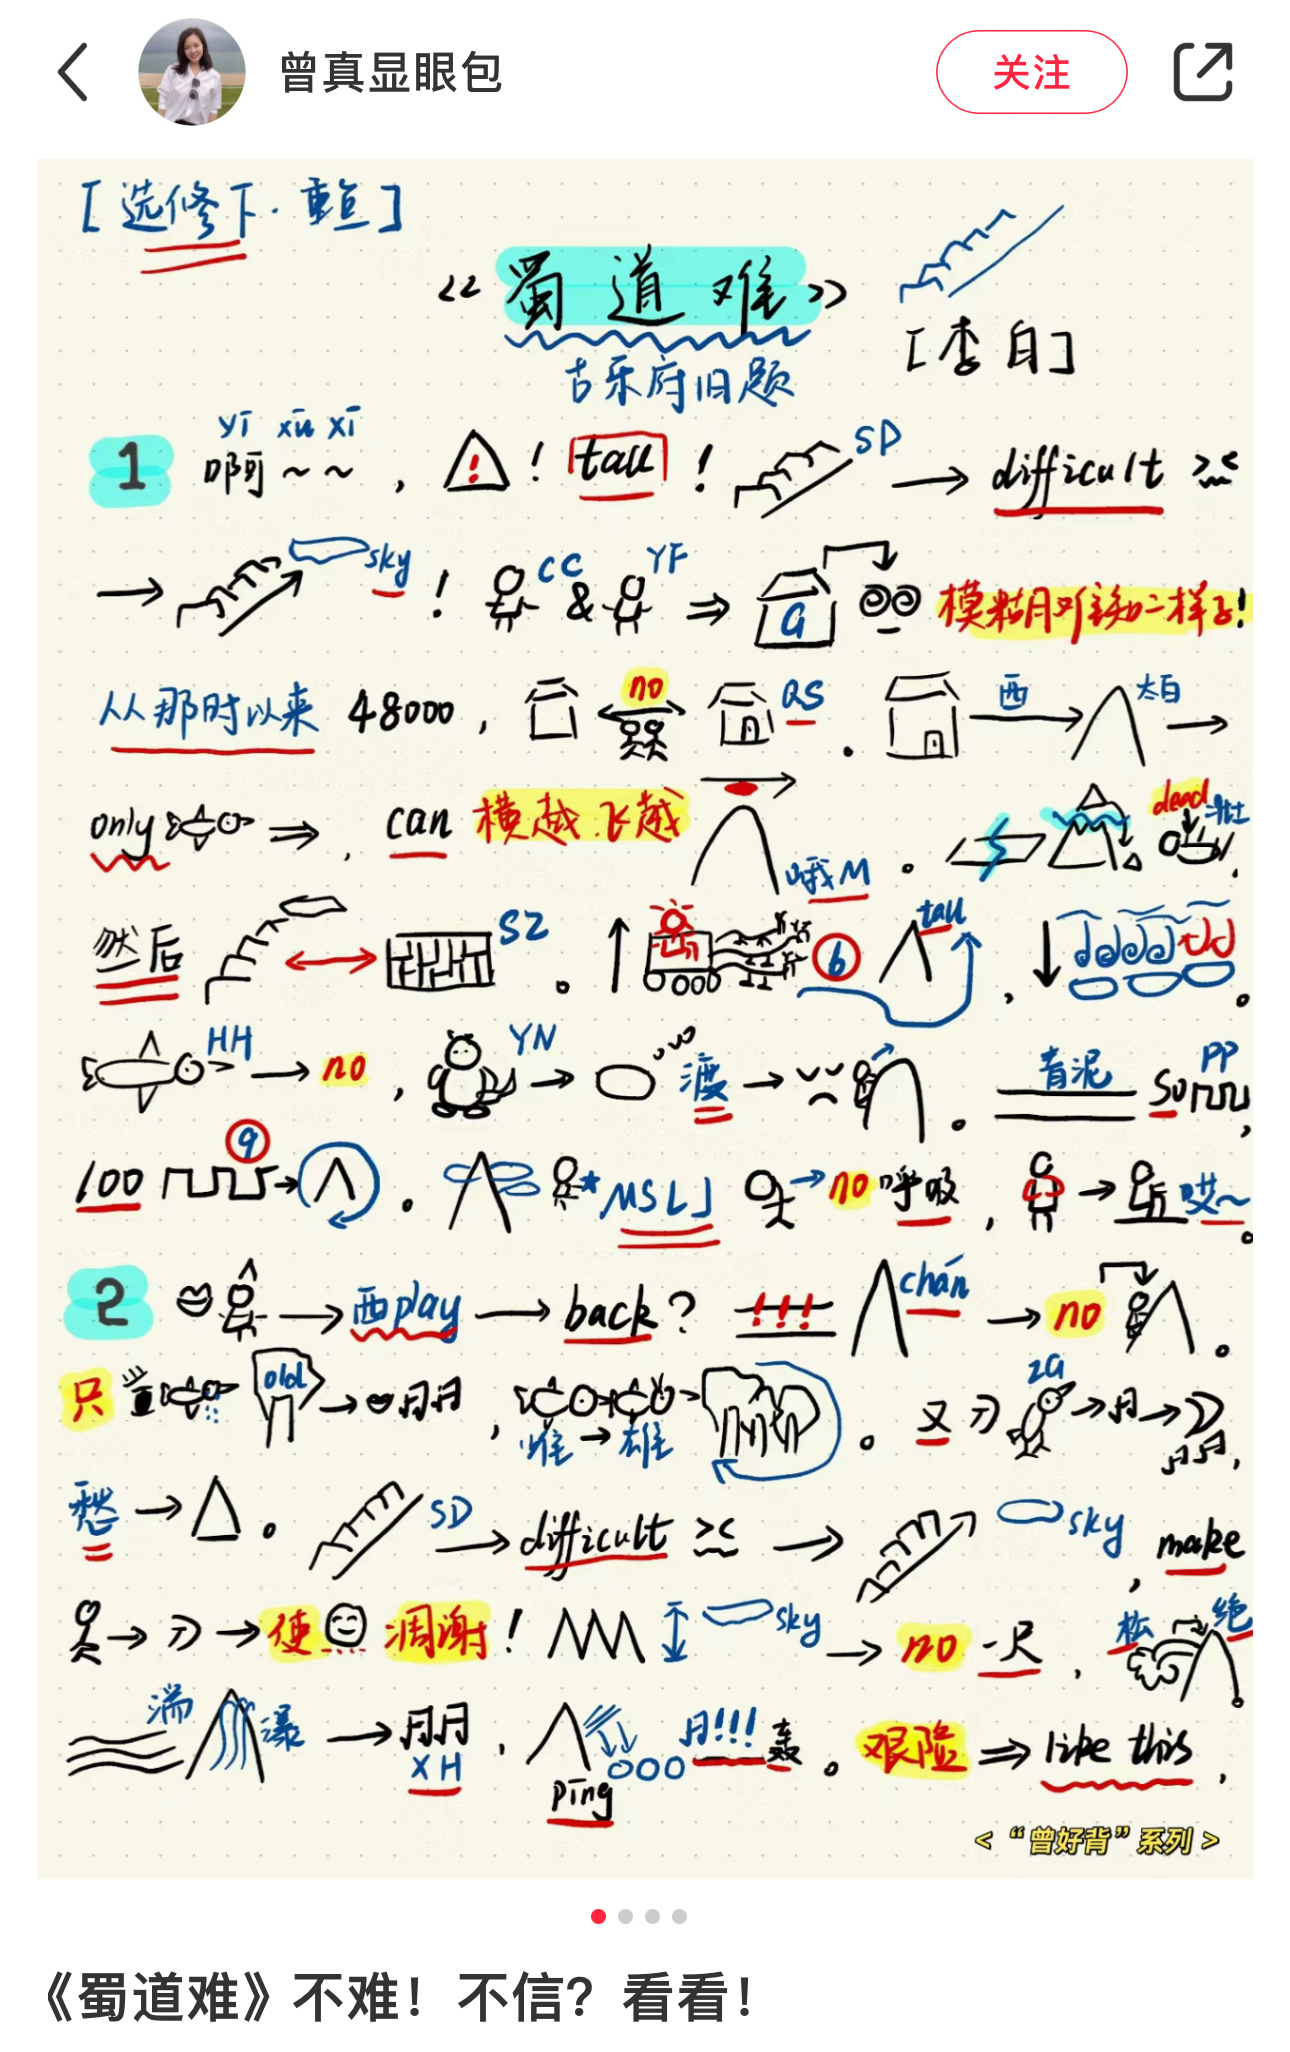 曾真显眼包
关注
[选修下·重点]
《蜀道难》
[李白]
古乐府旧题
yī xū xī
1 啊~~，！！tall！SD → difficult
→ sky！CC & YF ⇒ G 模糊难知二样子！
从那时以来 48000，no QS。西 太白 →
only ⇒，can 横越飞越 哦M。dead 壮，
然后 SZ。6 tall，。
HH → no，YN → 渡 →。青泥 so PP，
100 9 →。MSLJ no 呼吸，→ 哎~。
2 → 西play → back？!!! chán → no。
只 old →，雌→雄。又 ZG → →，
愁 →。SD → difficult → sky，make
→ → 使凋谢！sky → no 一尺，松 绝
湍 瀑 → XH，pīng !!! 轰。艰险 ⇒ like this，
<“曾好背”系列>
《蜀道难》不难！不信？看看！